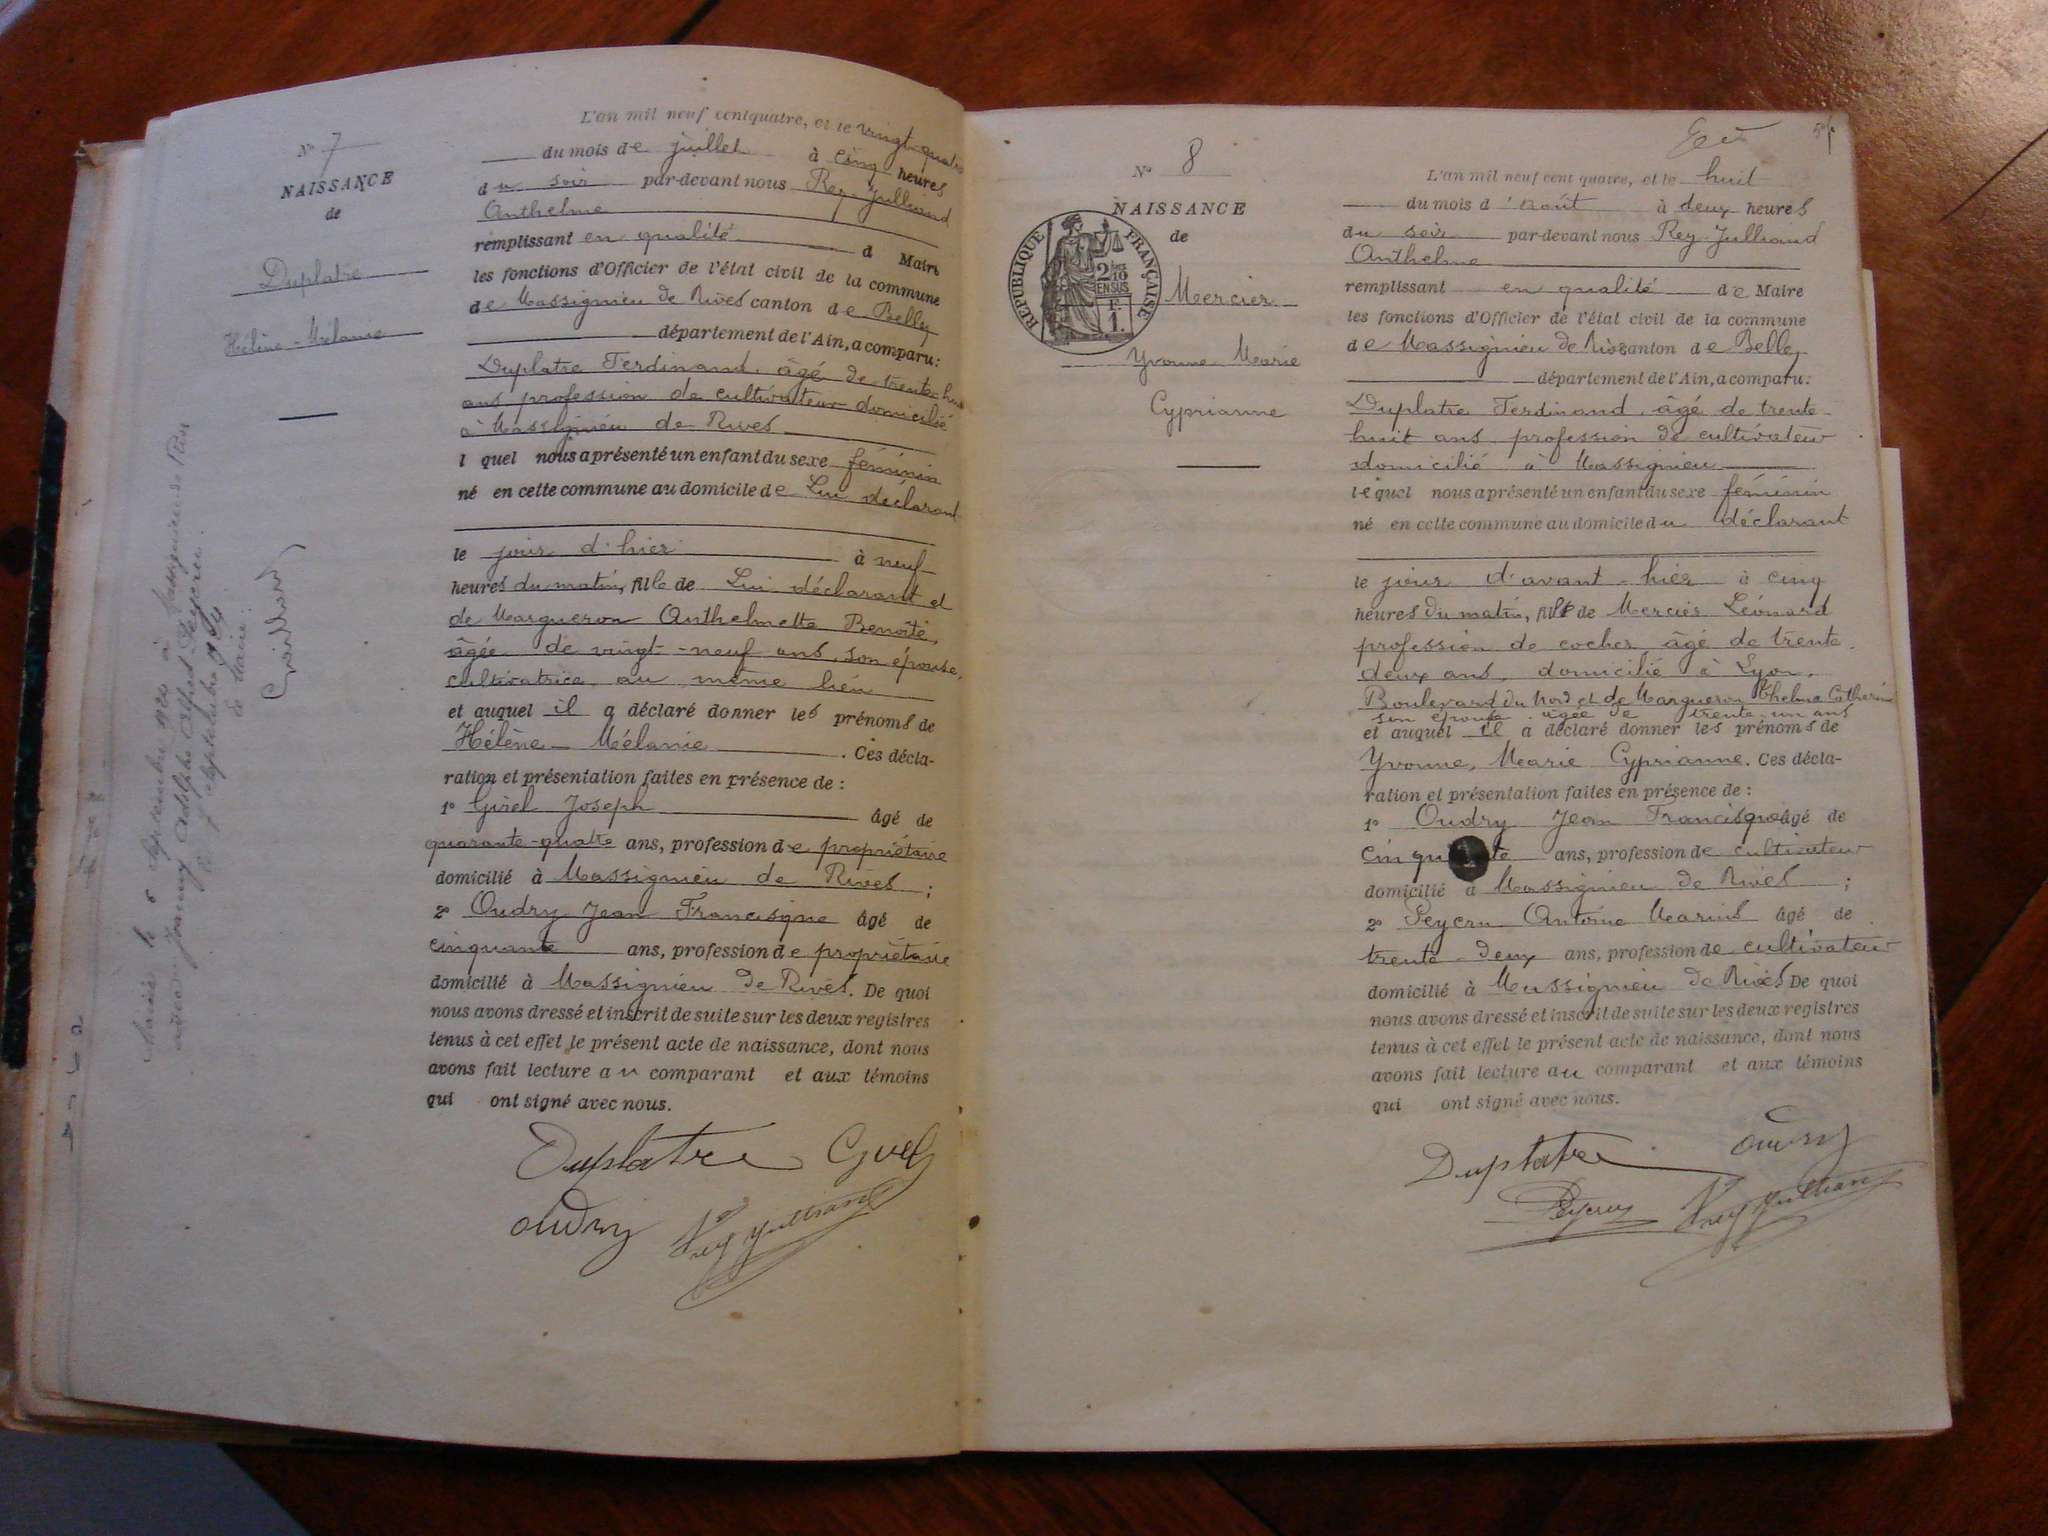 N° 7
NAISSANCE
de
Duplatre
Hélène - Mélanie
L'an mil neuf cent quatre, et le vingt-quatre
du mois de juillet à cinq heures
du soir par-devant nous Rey Julliand
Anthelme
remplissant en qualité d Maire
les fonctions d'Officier de l'état civil de la commune
de Massignieu de Rives canton de Belley
département de l'Ain, a comparu:
Duplatre Ferdinand, âgé de trente-huit
ans profession de cultivateur domicilié
à Massignieu de Rives
l quel nous a présenté un enfant du sexe féminin
né en cette commune au domicile de Lui déclarant
le jour d'hier à neuf
heures du matin, fille de Lui déclarant et
de Margueron Anthelmette Benoîte,
âgée de vingt-neuf ans, son épouse,
cultivatrice au même lieu
et auquel il a déclaré donner les prénoms de
Hélène - Mélanie. Ces décla-
ration et présentation faites en présence de :
1° Girel Joseph âgé de
quarante-quatre ans, profession de propriétaire
domicilié à Massignieu de Rives ;
2° Oudry Jean Francisque âgé de
cinquante ans, profession de propriétaire
domicilié à Massignieu de Rives. De quoi
nous avons dressé et inscrit de suite sur les deux registres
tenus à cet effet le présent acte de naissance, dont nous
avons fait lecture au comparant et aux témoins
qui ont signé avec nous.
Duplatre Girel
Oudry Rey Julliand
Marié le 6 septembre 1924 à
avec Adolphe Alfred Peycru.
le 7 septembre 1924
le Maire:
N° 8
NAISSANCE
de
RÉPUBLIQUE FRANÇAISE
2/10 EN SUS
1 F.
Mercier
Yvonne Marie
Cyprianne
L'an mil neuf cent quatre, et le huit
du mois d'Août à deux heures
du soir par-devant nous Rey Julliand
Anthelme
remplissant en qualité de Maire
les fonctions d'Officier de l'état civil de la commune
de Massignieu de Rives canton de Belley
département de l'Ain, a comparu:
Duplatre Ferdinand, âgé de trente-
huit ans profession de cultivateur
domicilié à Massignieu
lequel nous a présenté un enfant du sexe féminin
né en cette commune au domicile du déclarant
le jour d'avant-hier à cinq
heures du matin, fille de Mercier Léonard
profession de cocher âgé de trente-
deux ans, domicilié à Lyon,
Boulevard du Nord et de Margueron Thelma Catherine
son épouse âgée de trente-un ans
et auquel il a déclaré donner les prénoms de
Yvonne, Marie Cyprianne. Ces décla-
ration et présentation faites en présence de :
1° Oudry Jean Francisque âgé de
cinquante ans, profession de cultivateur
domicilié à Massignieu de Rives ;
2° Peycru Antoine Marius âgé de
trente-deux ans, profession de cultivateur
domicilié à Massignieu de Rives De quoi
nous avons dressé et inscrit de suite sur les deux registres
tenus à cet effet le présent acte de naissance, dont nous
avons fait lecture au comparant et aux témoins
qui ont signé avec nous.
Duplatre Oudry
Peycru Rey Julliand